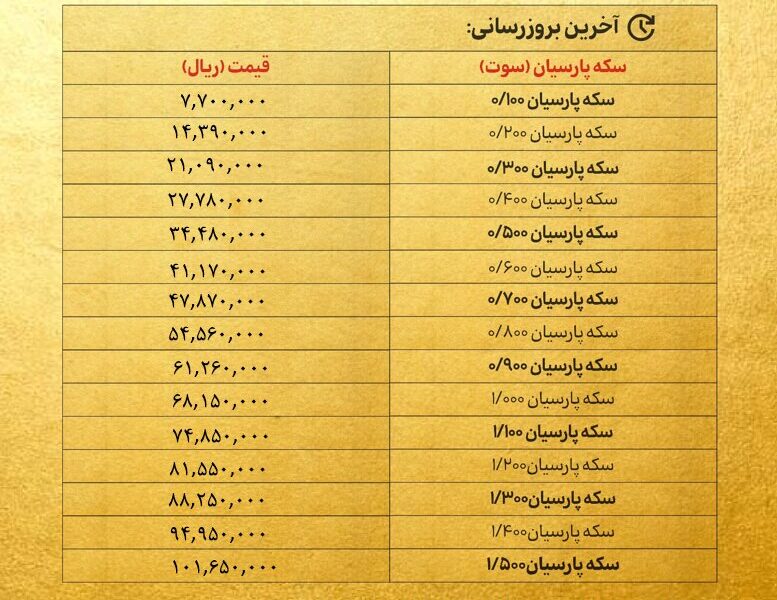 آخرین بروزرسانی:
سکه پارسیان (سوت) قیمت (ریال)
سکه پارسیان ۰/۱۰۰ ۷,۷۰۰,۰۰۰
سکه پارسیان ۰/۲۰۰ ۱۴,۳۹۰,۰۰۰
سکه پارسیان ۰/۳۰۰ ۲۱,۰۹۰,۰۰۰
سکه پارسیان ۰/۴۰۰ ۲۷,۷۸۰,۰۰۰
سکه پارسیان ۰/۵۰۰ ۳۴,۴۸۰,۰۰۰
سکه پارسیان ۰/۶۰۰ ۴۱,۱۷۰,۰۰۰
سکه پارسیان ۰/۷۰۰ ۴۷,۸۷۰,۰۰۰
سکه پارسیان ۰/۸۰۰ ۵۴,۵۶۰,۰۰۰
سکه پارسیان ۰/۹۰۰ ۶۱,۲۶۰,۰۰۰
سکه پارسیان ۱/۰۰۰ ۶۸,۱۵۰,۰۰۰
سکه پارسیان ۱/۱۰۰ ۷۴,۸۵۰,۰۰۰
سکه پارسیان۱/۲۰۰ ۸۱,۵۵۰,۰۰۰
سکه پارسیان۱/۳۰۰ ۸۸,۲۵۰,۰۰۰
سکه پارسیان۱/۴۰۰ ۹۴,۹۵۰,۰۰۰
سکه پارسیان۱/۵۰۰ ۱۰۱,۶۵۰,۰۰۰